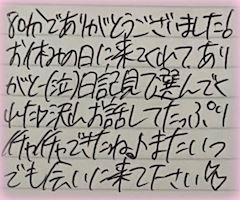 80分でありがとうございました!
お休みの日に来てくれてあり
がとー(泣)日記見て選んでく
れた♪沢山お話してたっぷり
イチャイチャできたね♪またいつ
でも会いに来て下さい